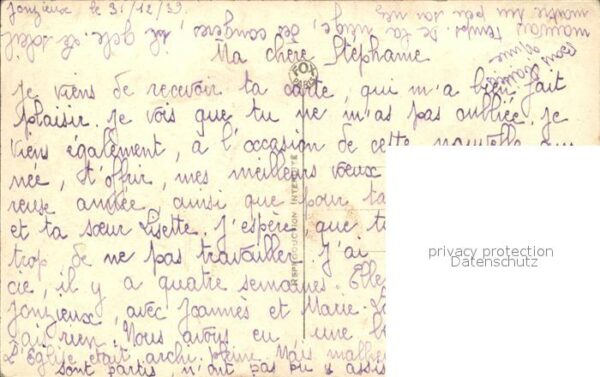 Jonzieux le 31/12/39.
Ma chère Stéphanie
Je viens de recevoir ta carte, qui m'a bien fait
plaisir. je vois que tu ne m'as pas oubliée. je
viens également, a l'occasion de cette nouvelle an
née, t'offrir, mes meilleurs vœux
reuse année ainsi que pour ta
et ta sœur Lisette. J'espère, que tu
trop de ne pas travailler. J'ai
cie, il y a quatre semaines. Elle
Jonzieux, avec Joannès et Marie.
rien. Nous avons eu une
L'Eglise était archi pleine. Mais malheu
sont partis, n'ont pas pu y assis
mauvais temps. De la neige, des congères, le gel. Le soleil
montre un peu son nez
FOX
REPRODUCTION INTERDITE
privacy protection
Datenschutz